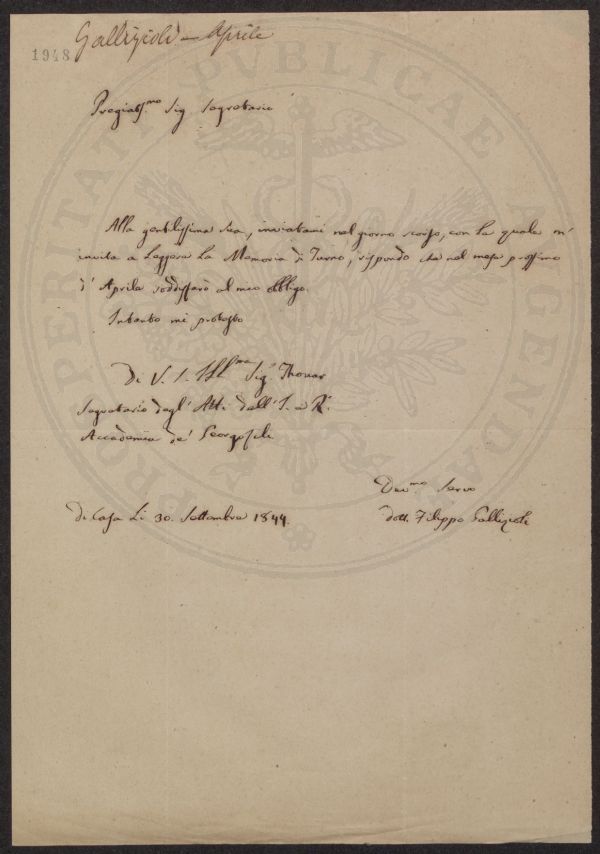 1948
Gallizioli - Aprile
Pregiatis.mo Sig. Segretario
Alla gentilissima sua, inviatami nel giorno scorso, con la quale m'
invita a Leggere la Memoria di Turno, rispondo che nel mese prossimo
d'Aprile soddisfarò al mio obbligo.
Intanto mi protesto
Di V. S. Ill.ma Sig. Thouar
Segretario degl'Atti dell'I. e R.
Accademia de' Georgofili
Dev.mo Servo
di Casa Li 30. Settembre 1844.
dott. Filippo Gallizioli
PROSPERITATI PUBLICAE AUGENDAE